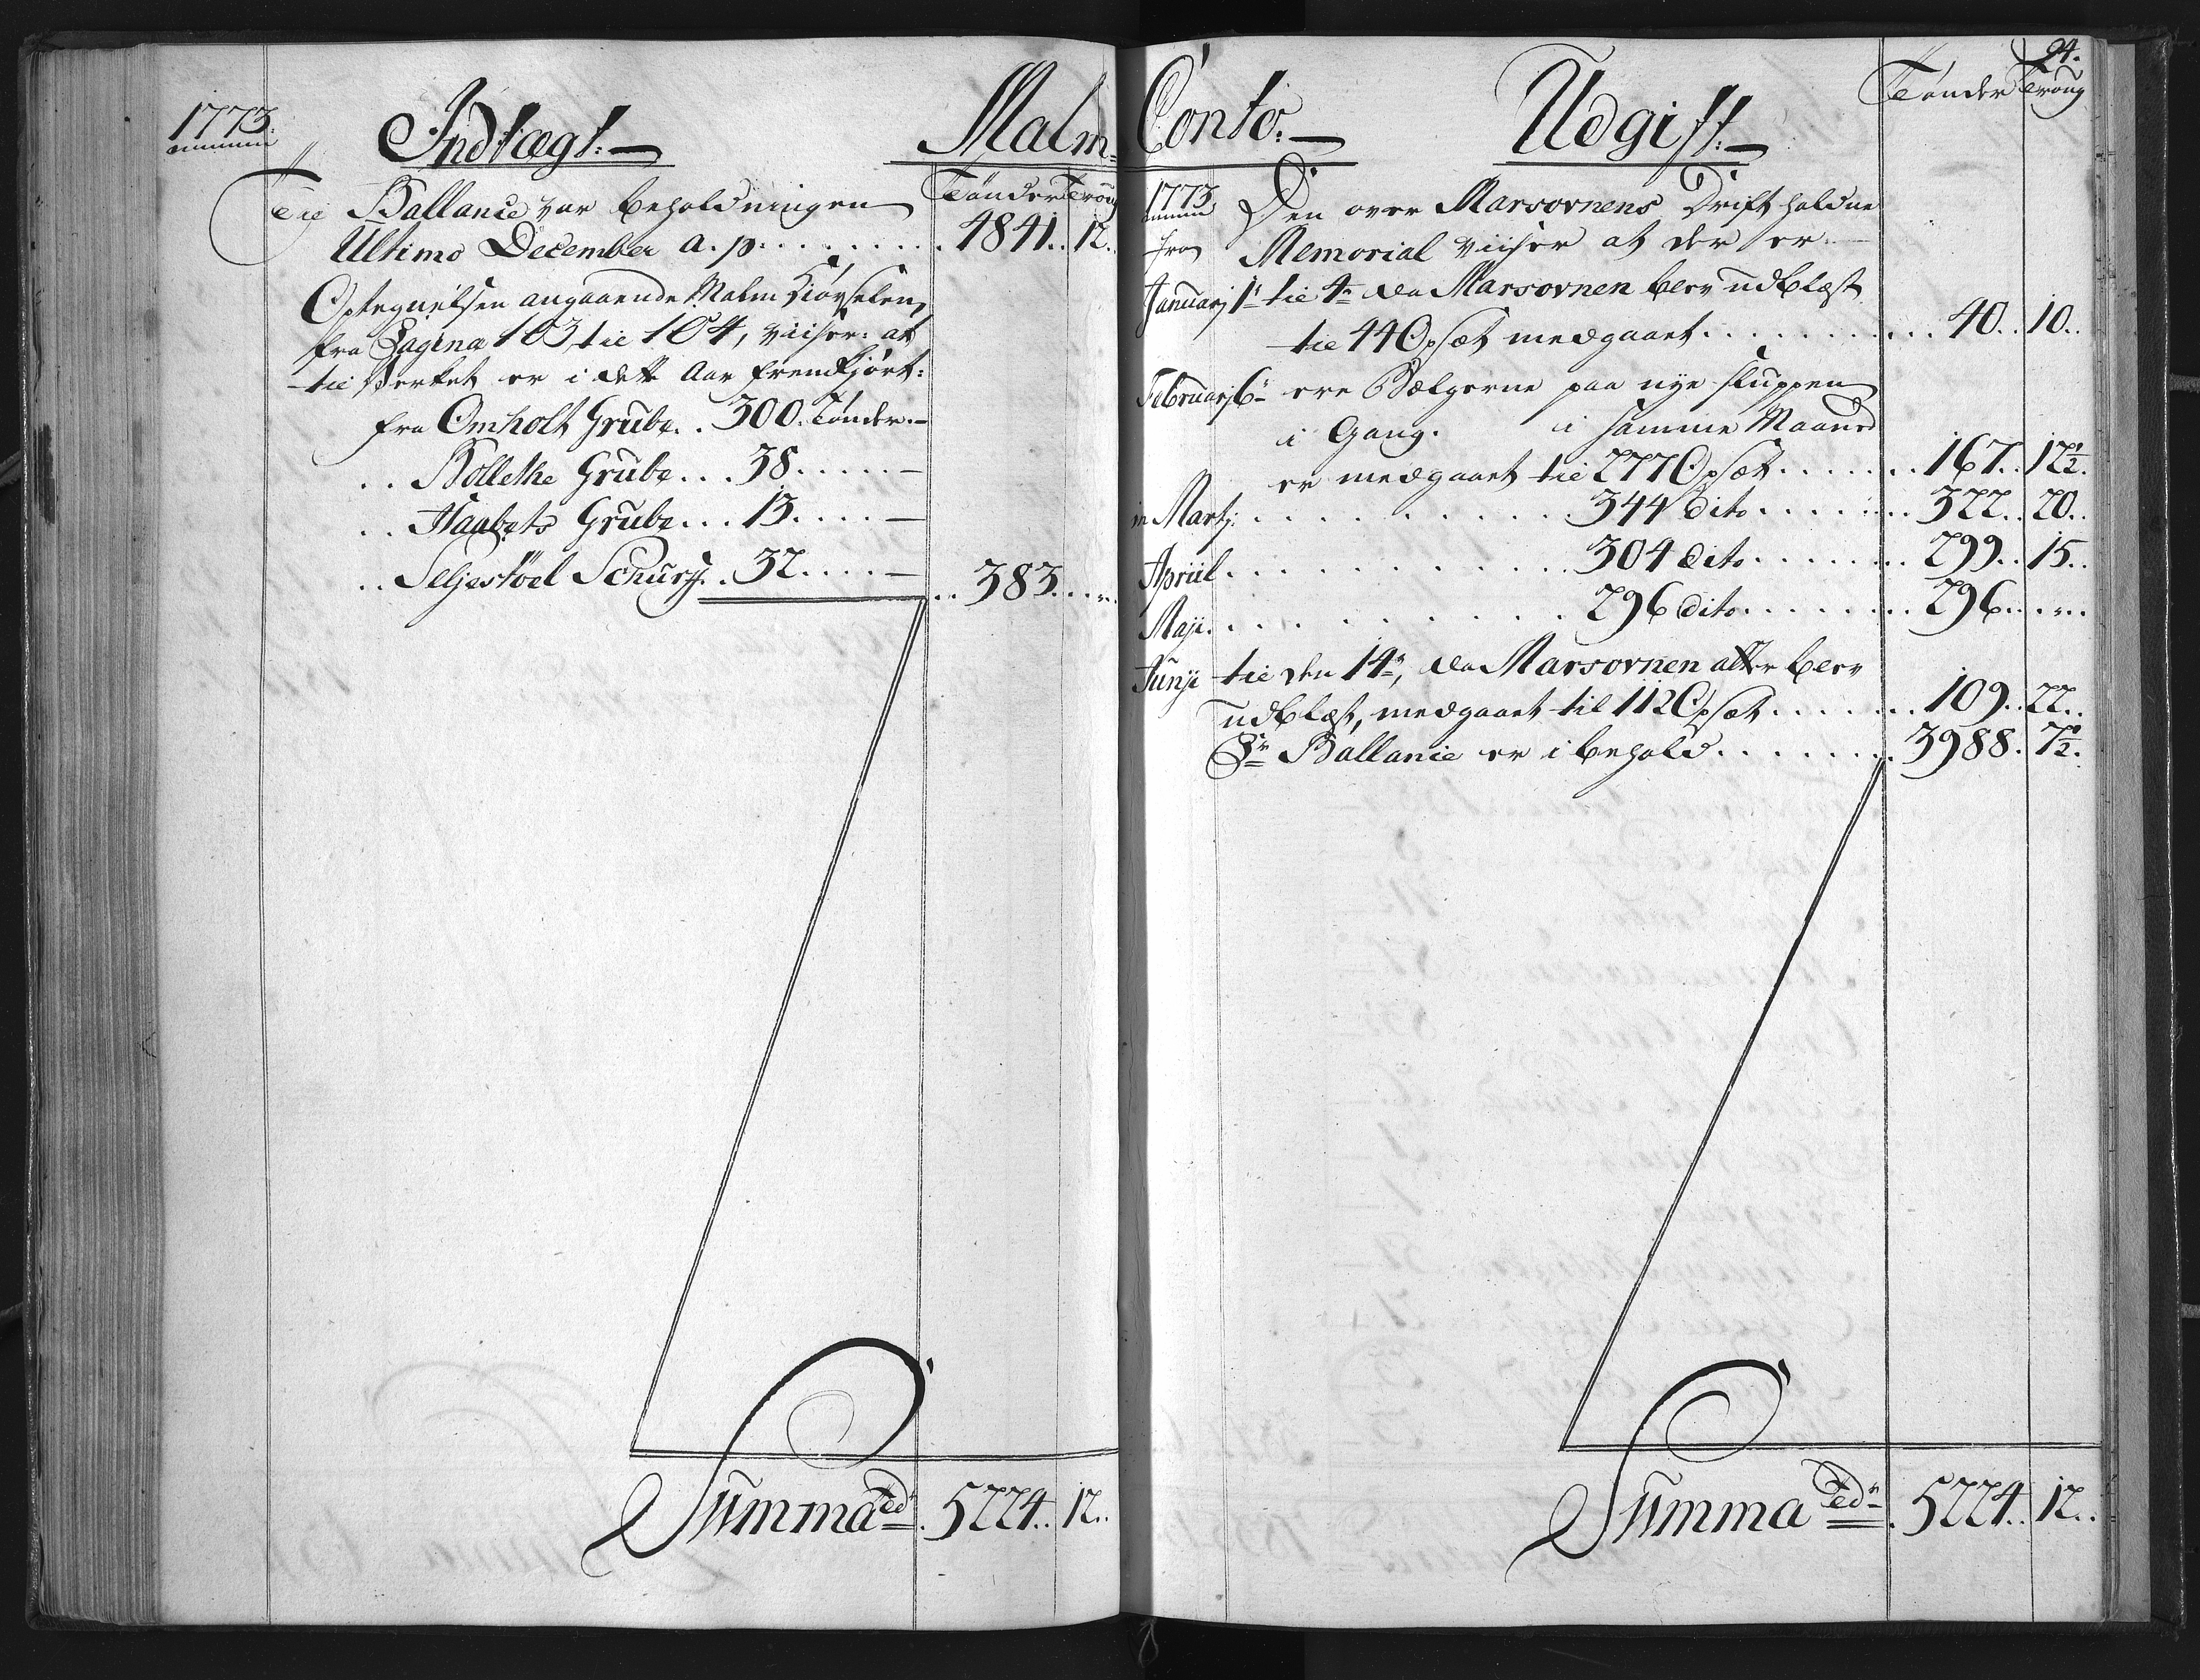 1773.
Indtægt.
Malm
Tönder Troug
Til Ballance var beholdningen
Ultimo December a. p. . . . . . . . . 4841. 12.
Optegnelsen angaaende Malm Kiörselen,
fra Pagina 103 til 104, viiser: at
til Verket er i dette Aar fremkjört:
fra Omholt Grube. . 300. Tönder.—
. . Bollethe Grube. . . 38. . . . . —
. . Haabets Grube. . . 13. . . . —
. . Seljestöel Schurff. . 32. . . . — . . 383. . . „.
Summa Tdr. 5224. . 12. .
94.
Conto. —
Udgift. —
Tönder Troug
1773. Den over Marsovnens Drift holdne
fra Memorial viiser at der er. —
Januarj 1e til 4e da Marsovnen blev udblæst
til 44 Opsæt medgaaet. . . . . . . . . . 40. . 10. .
Februarj 6e ere Bælgerne paa nye sluppen
i Gang. i samme Maaned
er medgaaet til 277 Opsæt. . . . . . . 167. . 12½.
in Martj: . . . . . . . . . . 344 dito. . . . . . . 322. . 20. .
Apriil. . . . . . . . . . . 304 dito. . . . . . . . 299. . 15. .
Maji. . . . . . . . . . . 296 dito. . . . . . . . 296. . . „. .
Junji til den 14e, da Marsovnen atter blev
udblæst, medgaaet til 112 Opsæt. . . . . . . 109. . 22. .
Pr Ballance er i behold. . . . . . . . 3988. 7½.
Summa Tdr. 5224. . 12. .